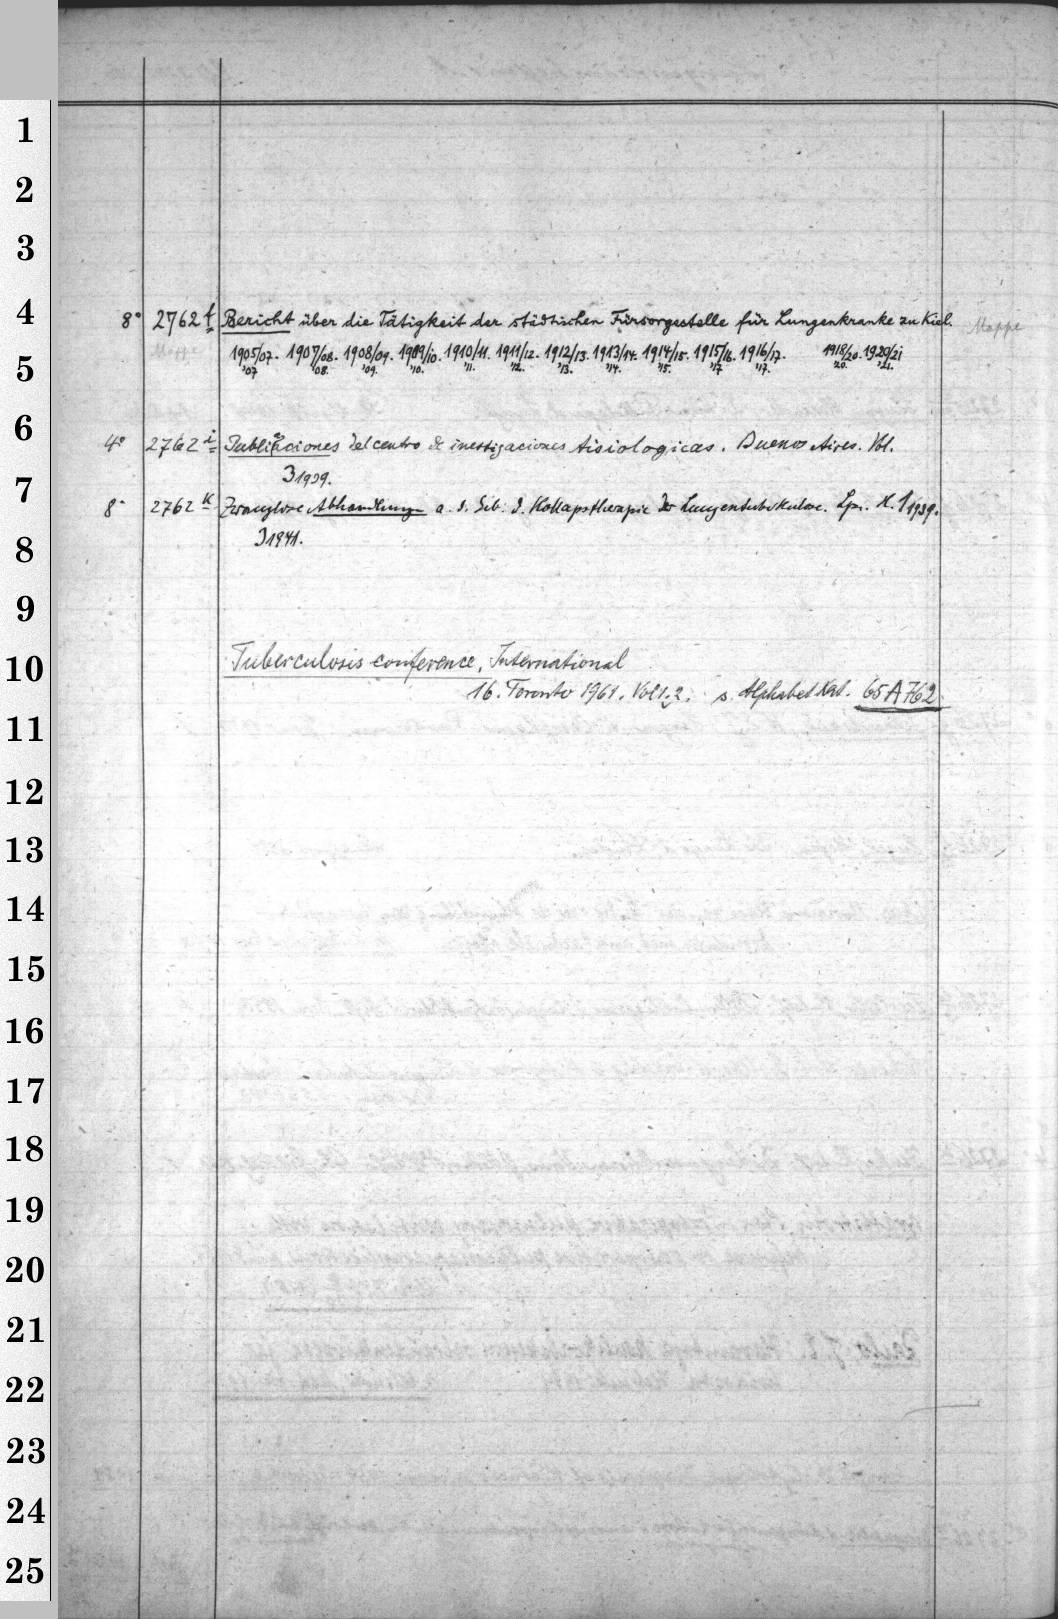 1
2
3
4
5
6
7
8
9
10
11
12
13
14
15
16
17
18
19
20
21
22
23
24
25
8° 2762 f Bericht über die Tätigkeit der städtischen Fürsorgestelle für Lungenkranke zu Kiel. Mappe
1905/07. 1907/08. 1908/09. 1909/10. 1910/11. 1911/12. 1912/13. 1913/14. 1914/15. 1915/16. 1916/17. 1918/20. 1920/21
'07 '08. '09. '10. '11. '12. '13. '14. '15. '17 '17. '20. '21.
4° 2762 i Publicaciones del centro de inestigaciones tisiologicas. Buenos Aires. Vol.
3 1939.
8° 2762 k Zwanglose Abhandlungen a. d. Geb. d. Kollapstherapie der Lungentuberkulose. Lpz. H. 1 1939.
3 1941.
Tuberculosis conference, International
16. Toronto 1961. Vol 1.2. s. Alphabet Kat. 65 A 762